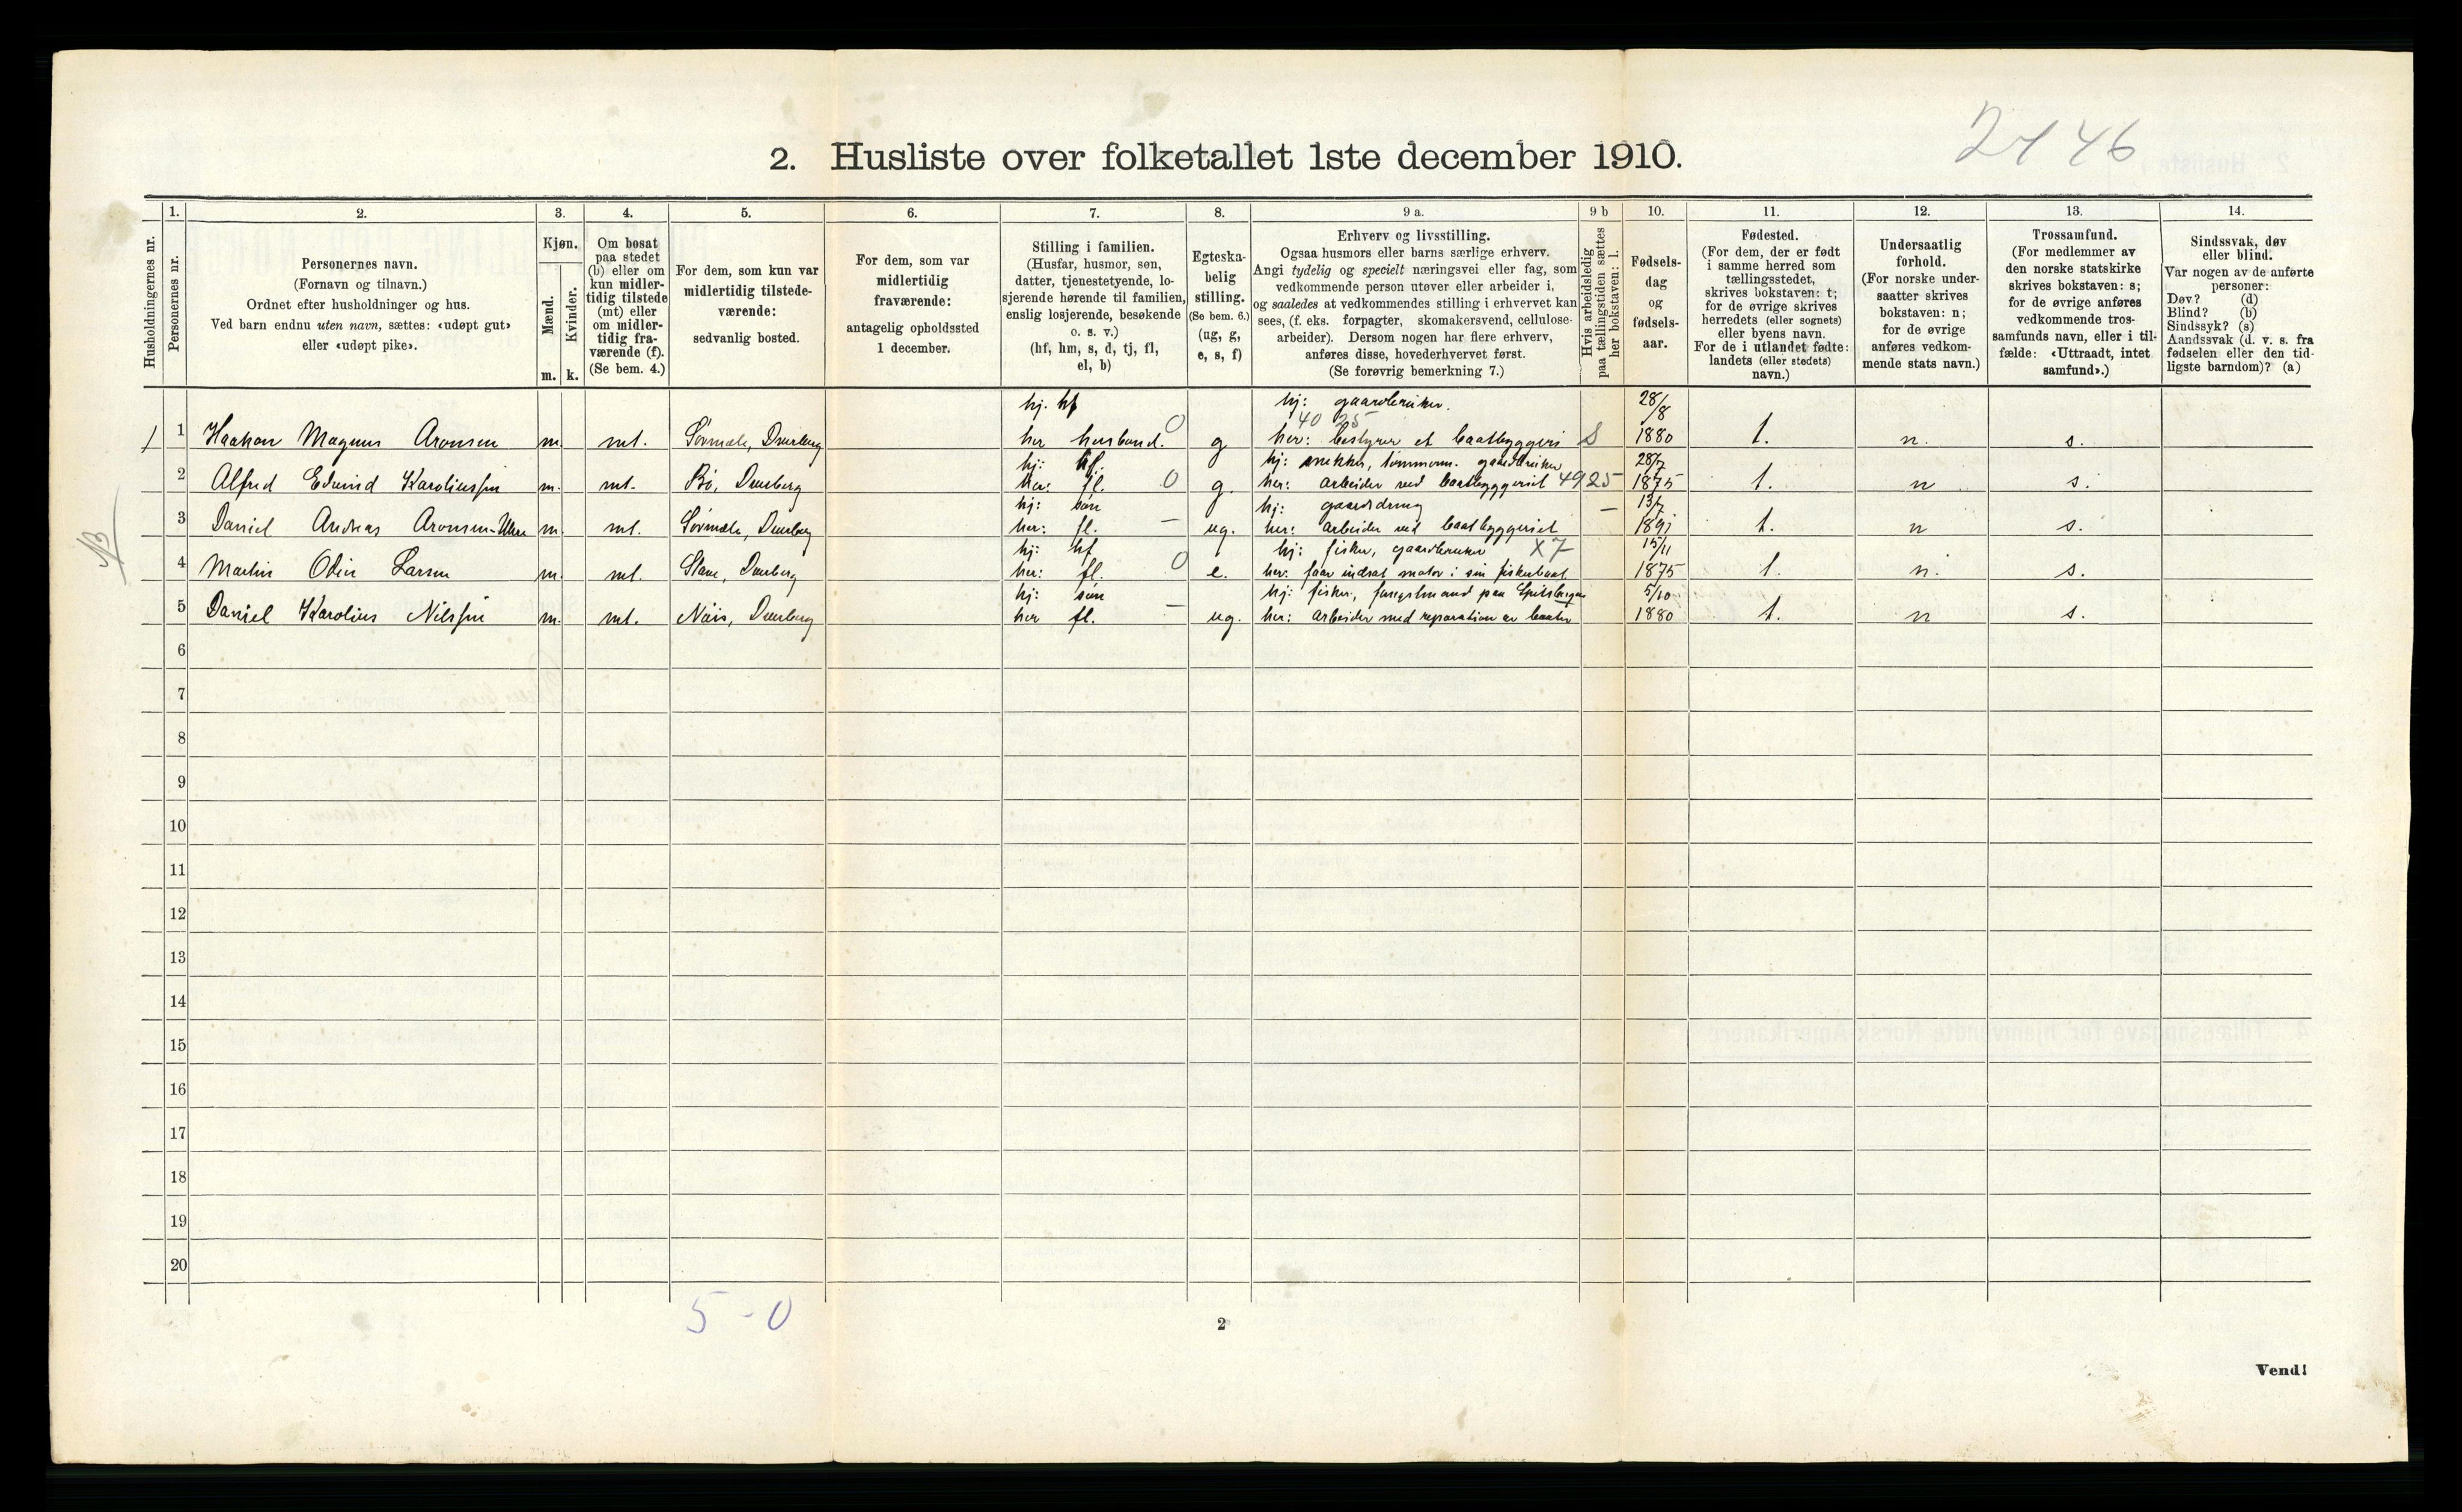 2. Husliste over folketallet 1ste december 1910.
2746
Husholdningernes nr.
1.
Personernes nr.
2.
Personernes navn.
(Fornavn og tilnavn.)
Ordnet efter husholdninger og hus.
Ved barn endnu uten navn, sættes: «udøpt gut»
eller «udøpt pike».
3.
Kjøn.
Mænd.
Kvinder.
m. k.
4.
Om bosat
paa stedet
(b) eller om
kun midler-
tidig tilstede
(mt) eller
om midler-
tidig fra-
værende (f).
(Se bem. 4.)
5.
For dem, som kun var
midlertidig tilstede-
værende:
sedvanlig bosted.
6.
For dem, som var
midlertidig
fraværende:
antagelig opholdssted
1 december.
7.
Stilling i familien.
(Husfar, husmor, søn,
datter, tjenestetyende, lo-
sjerende hørende til familien,
enslig losjerende, besøkende
o. s. v.)
(hf, hm, s, d, tj, fl,
el, b)
8.
Egteska-
belig
stilling.
(Se bem. 6.)
(ug, g,
e, s, f)
9 a.
Erhverv og livsstilling.
Ogsaa husmors eller barns særlige erhverv.
Angi tydelig og specielt næringsvei eller fag, som
vedkommende person utøver eller arbeider i,
og saaledes at vedkommendes stilling i erhvervet kan
sees, (f. eks. forpagter, skomakersvend, cellulose-
arbeider). Dersom nogen har flere erhverv,
anføres disse, hovederhvervet først.
(Se forøvrig bemerkning 7.)
9 b
Hvis arbeidsledig
paa tællingstiden sættes
her bokstaven: l.
10.
Fødsels-
dag
og
fødsels-
aar.
11.
Fødested.
(For dem, der er født
i samme herred som
tællingsstedet,
skrives bokstaven: t;
for de øvrige skrives
herredets (eller sognets)
eller byens navn.
For de i utlandet fødte:
landets (eller stedets)
navn.)
12.
Undersaatlig
forhold.
(For norske under-
saatter skrives
bokstaven: n;
for de øvrige
anføres vedkom-
mende stats navn.)
13.
Trossamfund.
(For medlemmer av
den norske statskirke
skrives bokstaven: s;
for de øvrige anføres
vedkommende tros-
samfunds navn, eller i til-
fælde: «Uttraadt, intet
samfund».)
14.
Sindssvak, døv
eller blind.
Var nogen av de anførte
personer:
Døv? (d)
Blind? (b)
Sindssyk? (s)
Aandssvak (d. v. s. fra
fødselen eller den tid-
ligste barndom)? (a)
hj. hf hj: gaardbruker. 28/8
40 25
1 1 Haakon Magnus Aronsen m. mt. Sørmæle, Dverberg her husbond. 0 g her: bestyrer et baatbyggeri S 1880 t. n. s.
hj: hf. hj: snekker, tømmerm. gaardbruker 28/7
2 Alfred Edvind Karoliussen m. mt. Bö, Dverberg her: fl. 0 g. her: arbeider ved baatbyggeriet 4925 1875 t. n s.
hj: søn hj: gaardsdreng 13/7
3 Daniel Andreas Aronsen m. mt. Sørmæle, Dverberg her: fl. — ug. her: arbeider ved baatbyggeriet — 1891 t. n s.
hj: hf hj: fisker, gaardbruker X7 15/11
4 Martin Odin Larsen m. mt. Stave, Dverberg her: fl. 0 e. her: faar indsat motor i sin fiskerbaat 1875 t. n. s.
hj: søn hj: fisker, fangstmand paa Spitsbergen 5/10
5 Daniel Karolius Nilssen m. mt. Nöis, Dverberg her fl. — ug. her: arbeider med reparation av baater 1880 t. n s.
6
7
8
9
10
11
12
13
14
15
16
17
18
19
20
5 - 0
2
Vend!